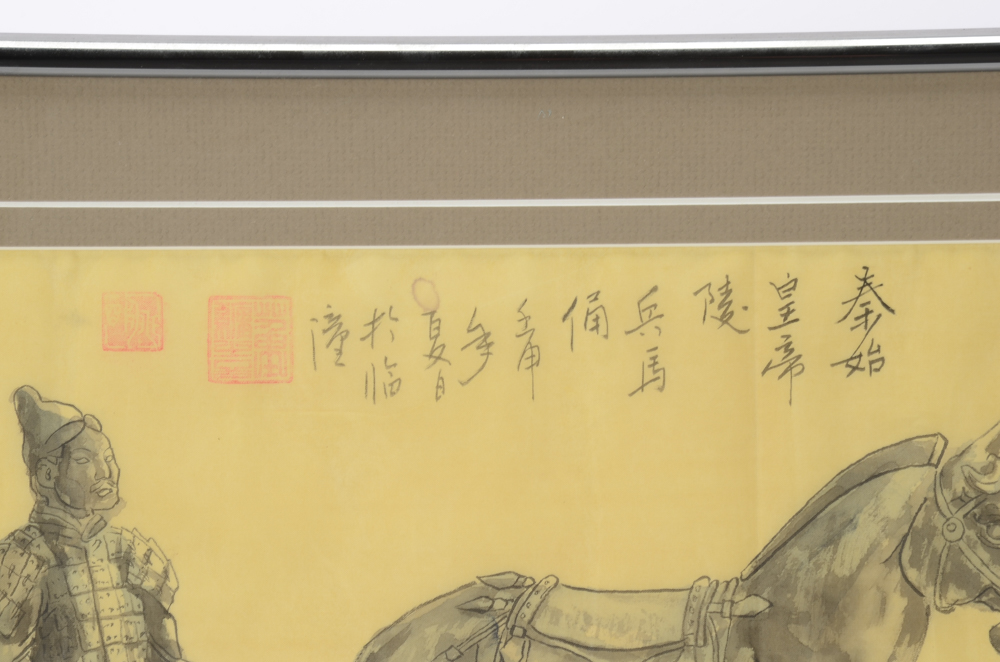 秦始
皇帝
陵
兵馬
俑
壬申
年
夏日
於臨
潼